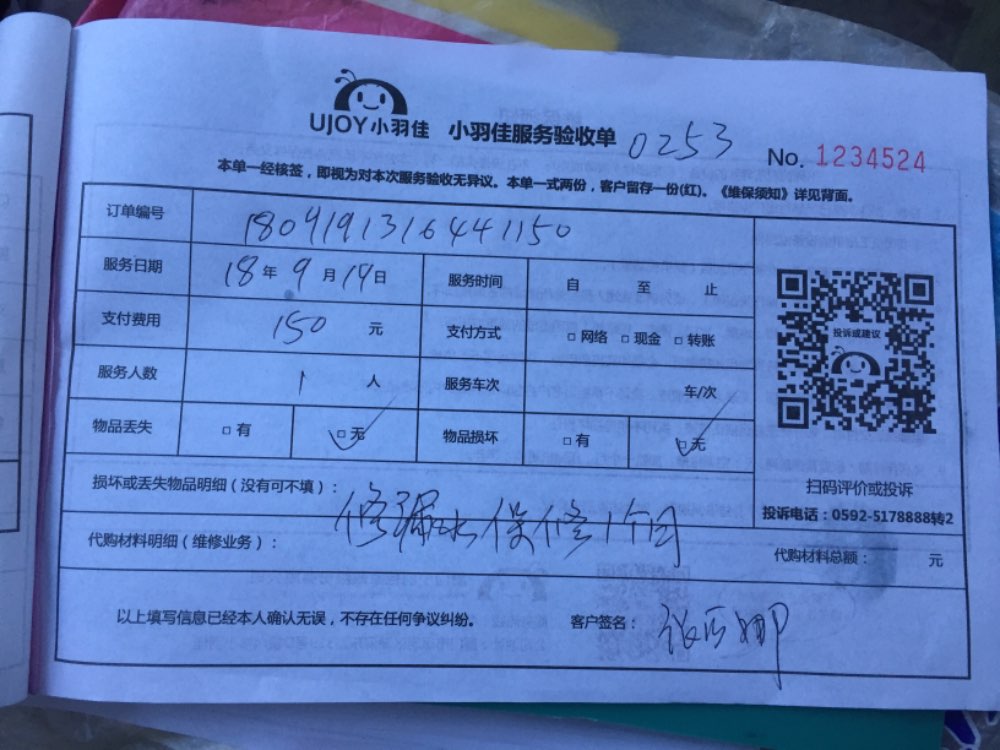 UJOY小羽佳 小羽佳服务验收单 0253 No. 1234524
本单一经核签，即视为对本次服务验收无异议。本单一式两份，客户留存一份(红)。《维保须知》详见背面。
订单编号 1809191316441150
服务日期 18年9月19日 服务时间 自 至 止
支付费用 150 元 支付方式 □网络 □现金 □转账
投诉或建议
服务人数 1 人 服务车次 车/次
物品丢失 □有 □无 物品损坏 □有 □无
损坏或丢失物品明细（没有可不填）：
扫码评价或投诉
修漏水保修1个月
投诉电话：0592-5178888转2
代购材料明细（维修业务）： 代购材料总额： 元
以上填写信息已经本人确认无误，不存在任何争议纠纷。 客户签名：